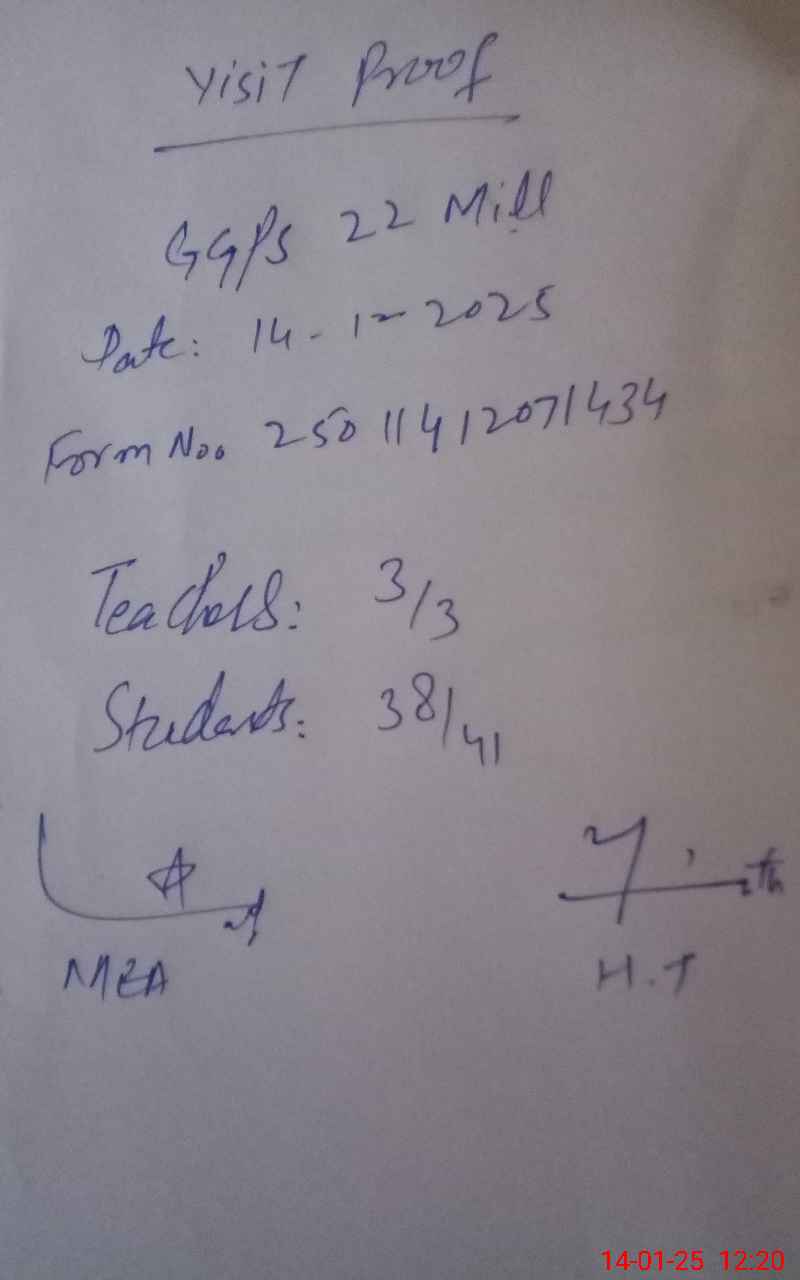 Visit Proof
GGPS 22 Mill
Date: 14-1-2025
Form No. 25011412071434
Teachers: 3/3
Students: 38/41
MEA
H.T
14-01-25 12:20